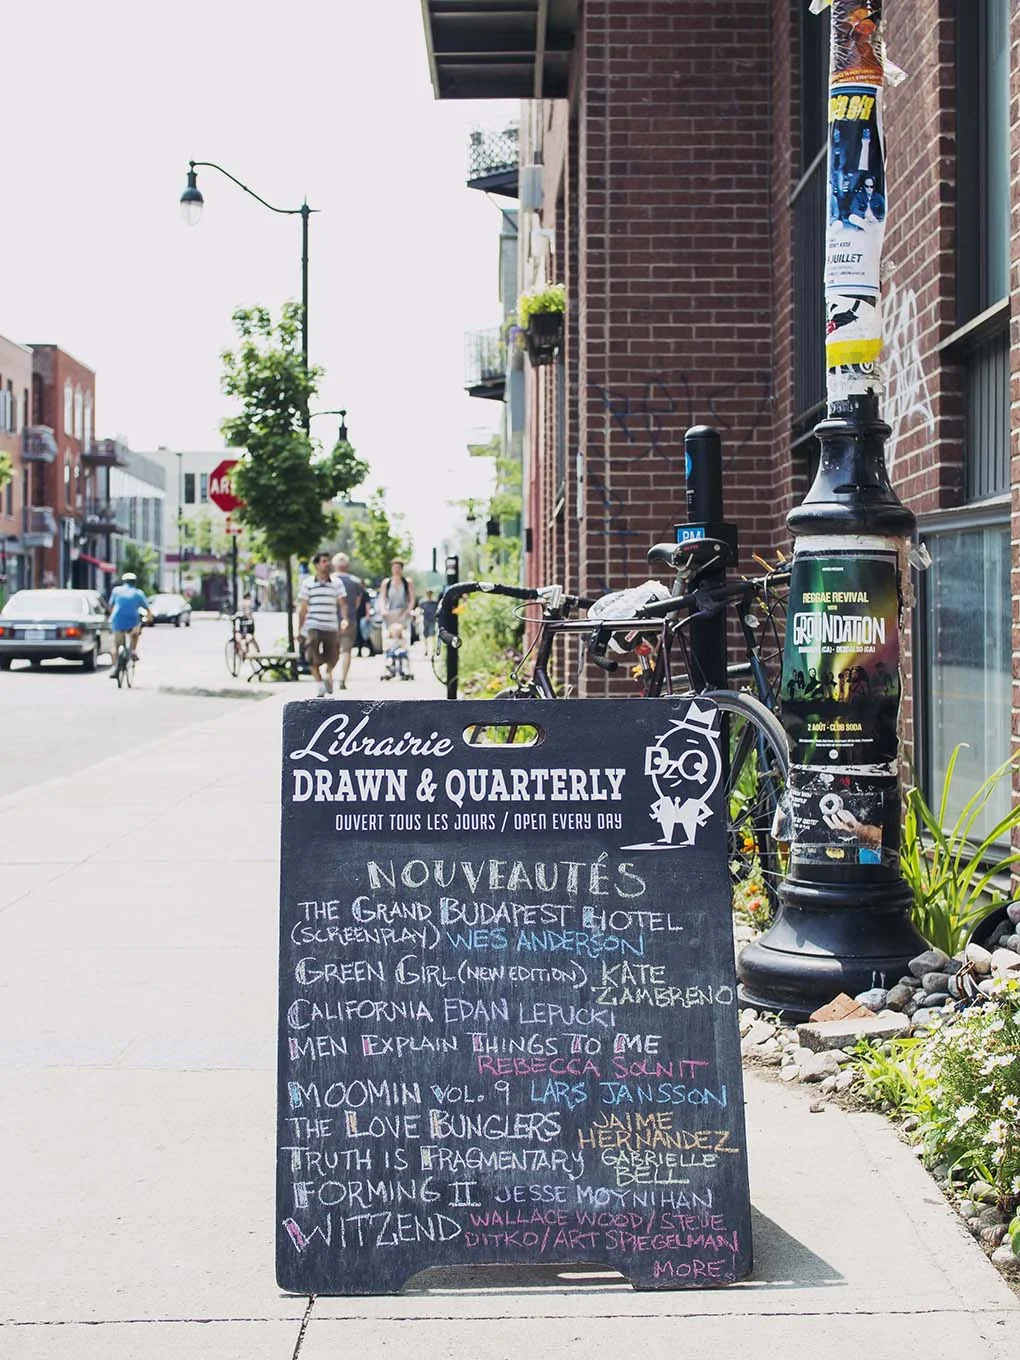 JUILLET
AR
REGGAE REVIVAL
WITH
GROUNDATION
2 AOÛT - CLUB SODA
Librairie
DRAWN & QUARTERLY
D&Q
OUVERT TOUS LES JOURS / OPEN EVERY DAY
NOUVEAUTÉS
THE GRAND BUDAPEST HOTEL
(SCREENPLAY) WES ANDERSON
GREEN GIRL (NEW EDITION) KATE
ZAMBRENO
CALIFORNIA EDAN LEPUCKI
MEN EXPLAIN THINGS TO ME
REBECCA SOLNIT
MOOMIN VOL. 9 LARS JANSSON
THE LOVE BUNGLERS JAIME
HERNANDEZ
TRUTH IS FRAGMENTARY GABRIELLE
BELL
FORMING II JESSE MOYNIHAN
WITZEND WALLACE WOOD/STEVE
DITKO/ART SPIEGELMAN
MORE!